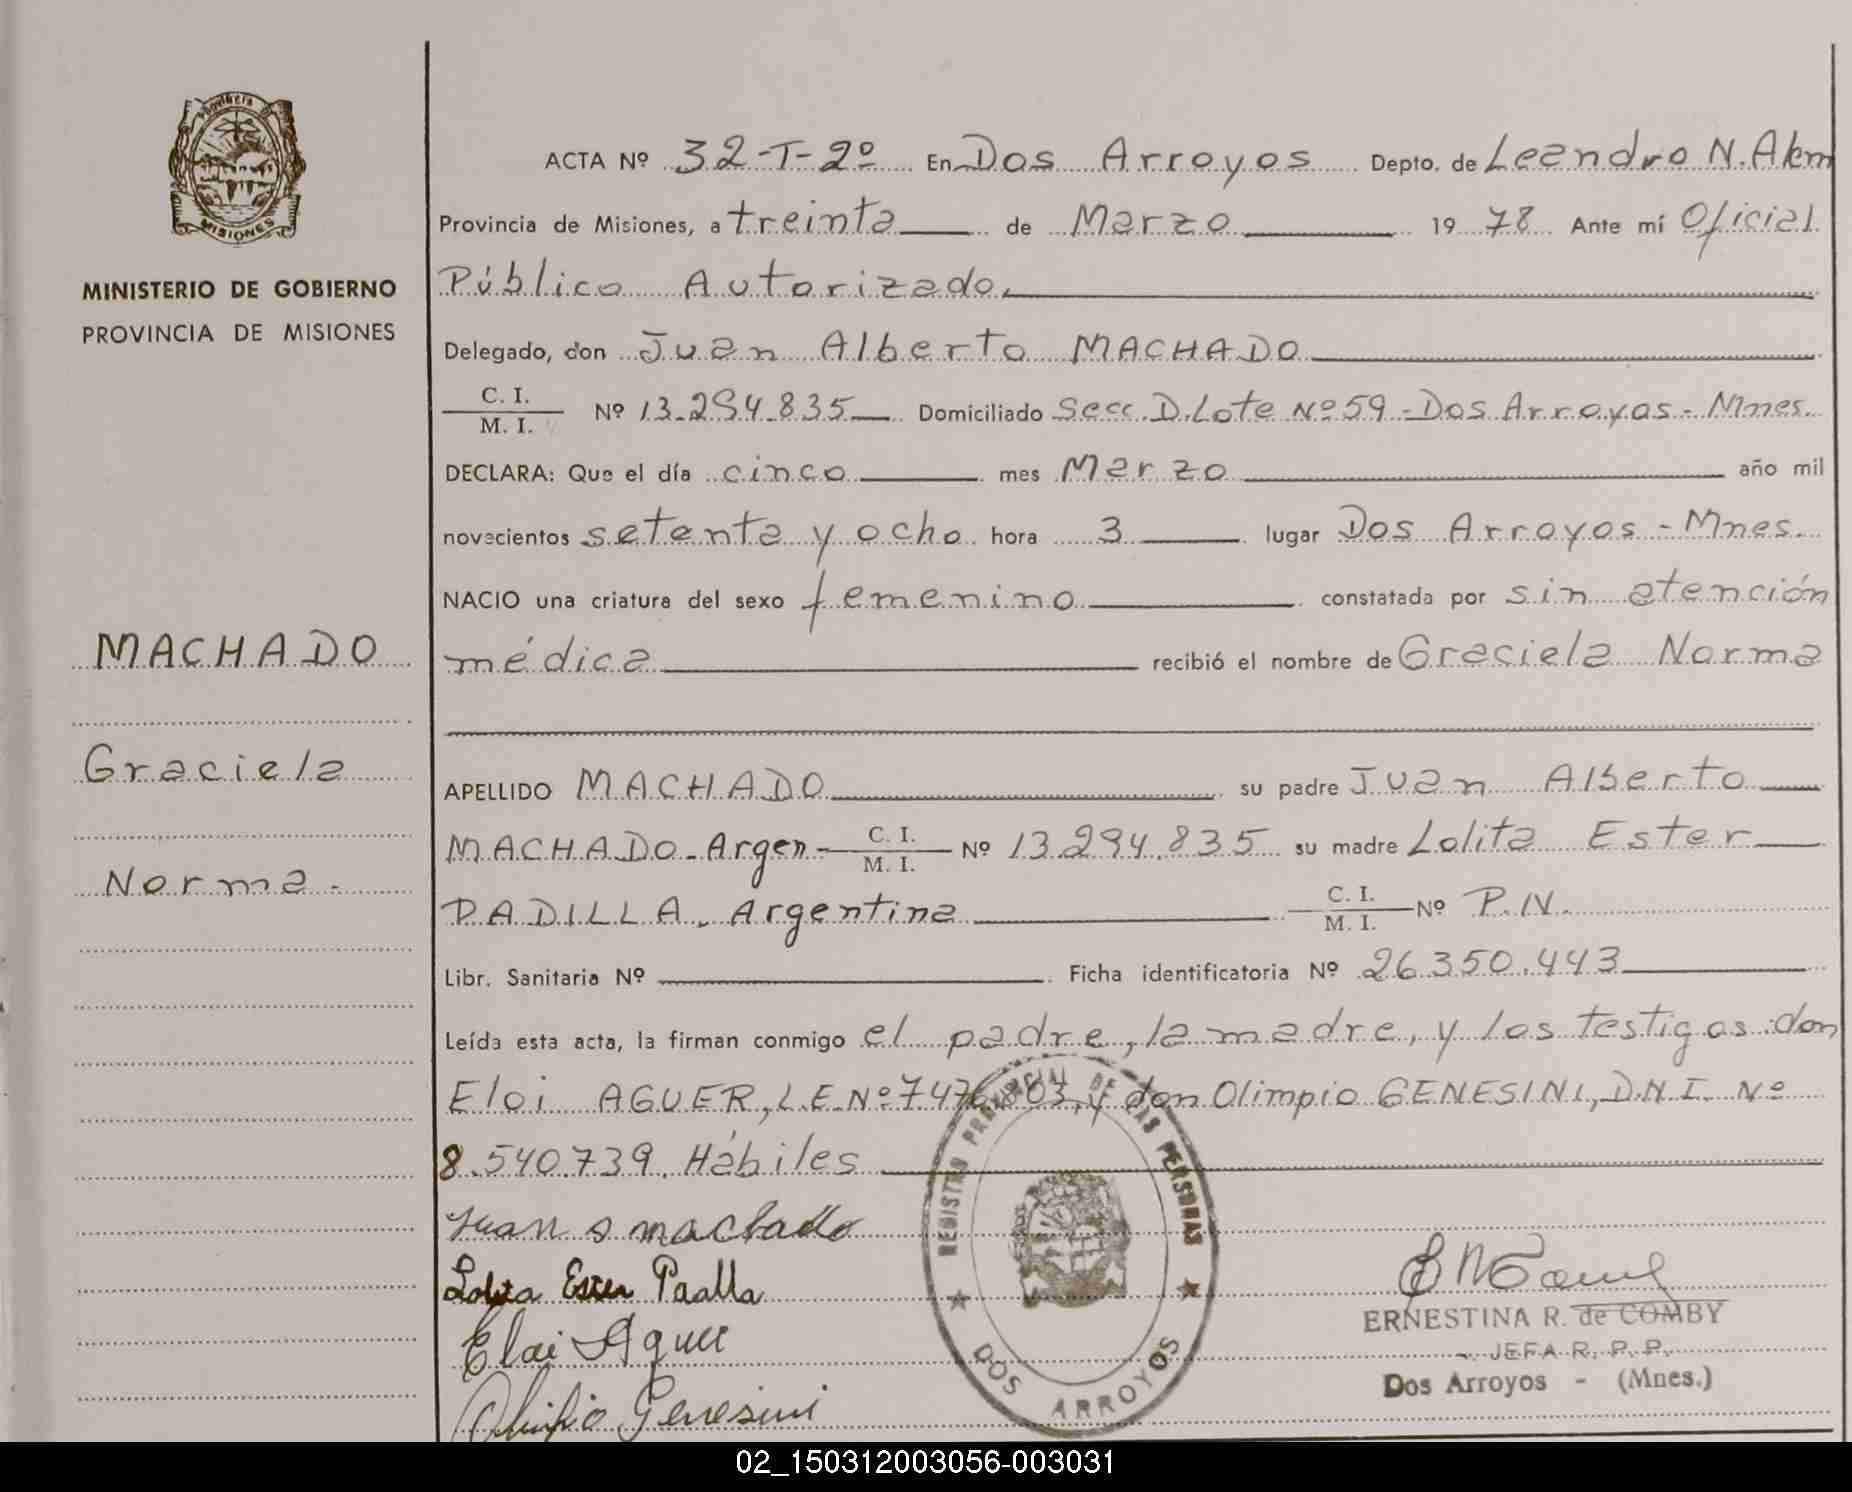 Provincia
MISIONES
MINISTERIO DE GOBIERNO
PROVINCIA DE MISIONES
MACHADO
Graciela
Norma.
ACTA Nº 32-T-2º En Dos Arroyos Depto. de Leandro N. Alem
Provincia de Misiones, a treinta de Marzo 19 78 Ante mí Oficial
Público Autorizado.
Delegado, don Juan Alberto MACHADO
C. I.
M. I. Nº 13.294.835 Domiciliado Secc. D. Lote Nº 59 - Dos Arroyos - Mnes.
DECLARA: Que el día cinco mes Marzo año mil
novecientos setenta y ocho hora 3 lugar Dos Arroyos - Mnes.
NACIO una criatura del sexo femenino constatada por sin atención
médica recibió el nombre de Graciela Norma
APELLIDO MACHADO su padre Juan Alberto
MACHADO - Argen - C. I. M. I. Nº 13.294.835 su madre Lolita Ester
PADILLA. Argentina C. I. M. I. Nº P.IV.
Libr. Sanitaria Nº Ficha identificatoria Nº 26.350.443
Leída esta acta, la firman conmigo el padre, la madre, y los testigos: don
Eloi AGUER, L.E. Nº y don Olimpio GENESINI, D.N.I. Nº
8.540.739. Hábiles
Juan a machado
Lolita Ester Paalla
Eloi Aguer
Olimpio Genesini
REGISTRO PROVINCIAL DE LAS PERSONAS
DOS ARROYOS
ERNESTINA R. de COMBY
JEFA R. P. P.
Dos Arroyos - (Mnes.)
02_150312003056-003031